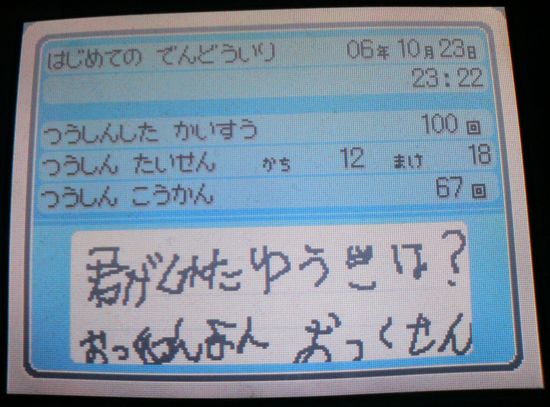 はじめての でんどういり 06年10月23日
23:22
つうしんした かいすう 100回
つうしん たいせん かち 12 まけ 18
つうしん こうかん 67回
君がくれたゆうきは?
おっくせんまん おっくせん